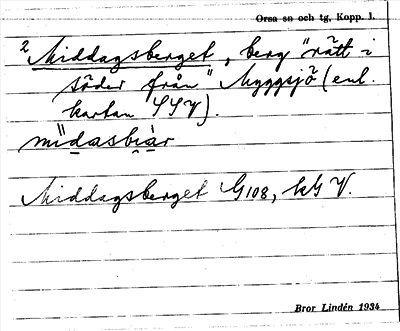 Orsa sn och tg, Kopp. l.
2 Middagsberget, berg "rätt i
söder från" Myggsjö (enl.
kartan SSV).
Middagsberget G108, kG V.
Bror Lindén 1934